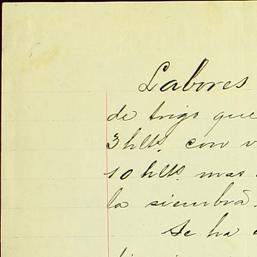 Labores
de trigo que
3 hlts. con
10 hlts. mas
la siembra.
Se ha